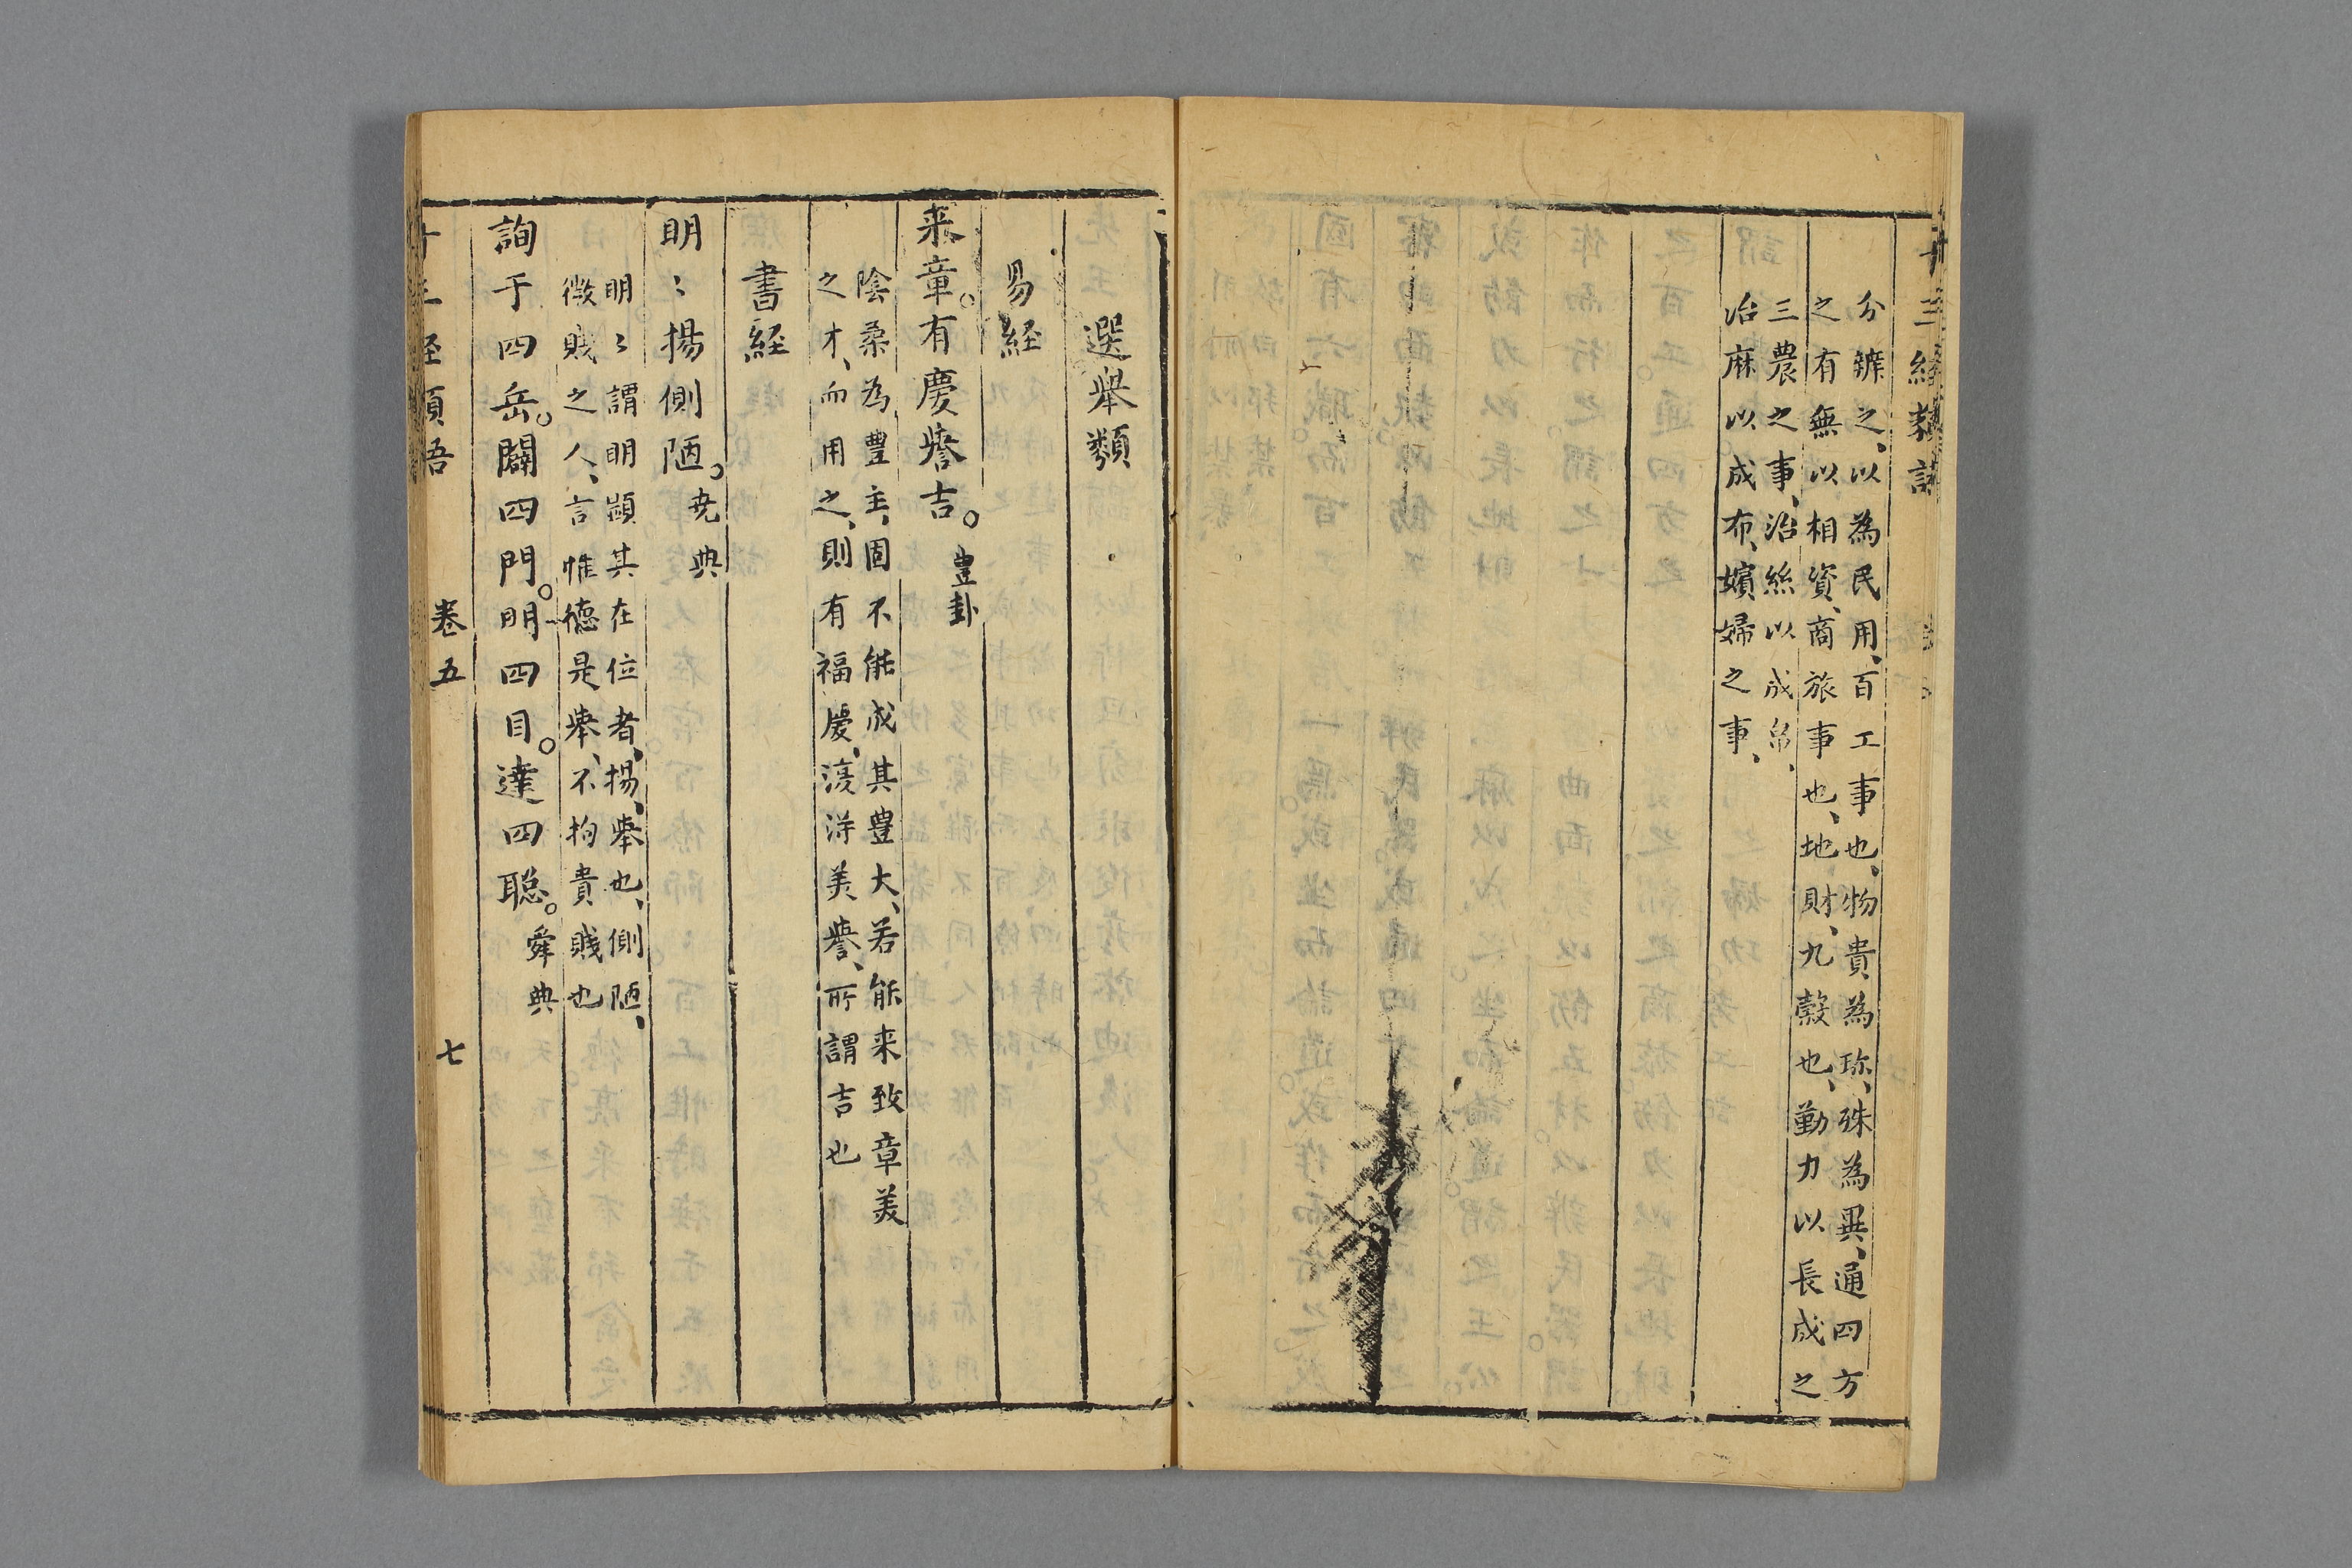 十三經類語
分辨之、以為民用、百工事也、物貴為珎、殊為異、通四方
之有無以相資、商旅事也、地財、九穀也、勤力以長成之
三農之事、治絲以成帛、
治麻以成布、嬪婦之事、
選舉類
易経
来章。有慶譽吉。豊卦
陰柔為豊主、固不能成其豊大、若能来致章美
之才、而用之、則有福慶、復淂美譽、所謂吉也
書経
明〻揚側陋。尭典
明〻謂明顕其在位者、揚、舉也、側陋、
微賤之人、言惟德是舉、不拘貴賤也
詢于四岳。闢四門。明四目。達四聡。舜典
十三経類語 卷五 七